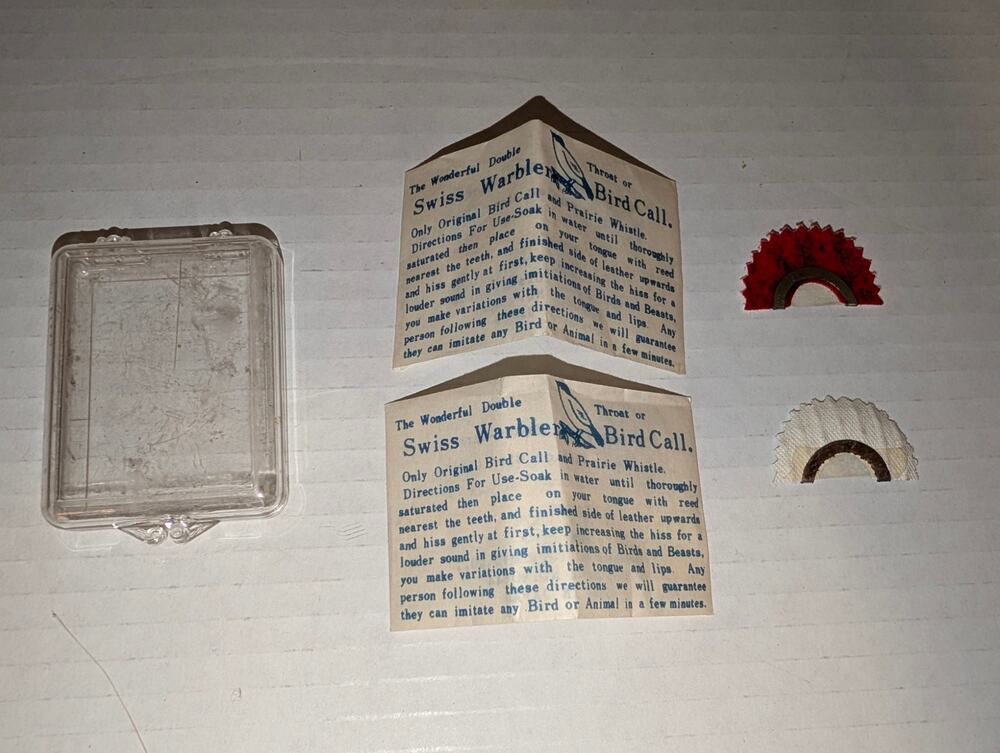 The Wonderful Double Throat or
Swiss Warbler Bird Call.
Only Original Bird Call and Prairie Whistle.
Directions For Use-Soak in water until thoroughly
saturated then place on your tongue with reed
nearest the teeth, and finished side of leather upwards
and hiss gently at first, keep increasing the hiss for a
louder sound in giving imitiations of Birds and Beasts,
you make variations with the tongue and lips. Any
person following these directions we will guarantee
they can imitate any Bird or Animal in a few minutes.
The Wonderful Double Throat or
Swiss Warbler Bird Call.
Only Original Bird Call and Prairie Whistle.
Directions For Use-Soak in water until thoroughly
saturated then place on your tongue with reed
nearest the teeth, and finished side of leather upwards
and hiss gently at first, keep increasing the hiss for a
louder sound in giving imitiations of Birds and Beasts,
you make variations with the tongue and lips. Any
person following these directions we will guarantee
they can imitate any Bird or Animal in a few minutes.